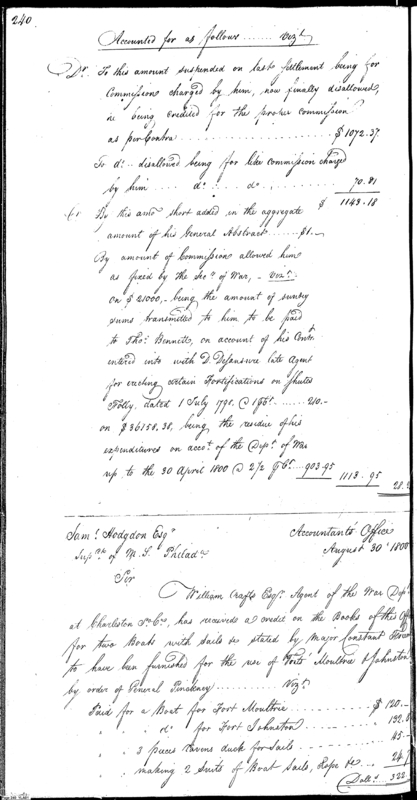 240
Accounted for as follows ....... Vizt
Dr. To this amount suspended on last settlement being for
Commission charged by him, now finally disallowed,
he being credited for the proper commission
as per Contra .................... $1072.37
To do. disallowed being for like commission charged
by him ...... do ...... do ........ 70.81
$ 1143.18
Cr By this amot short added in the aggregate
amount of his General Abstract ...... $1.–
By amount of Commission allowed him
as fixed by the Secy of War, – Vizt.
On $21000,– being the amount of sundry
sums transmitted to him to be paid
to Thos. Bennett, on account of his Contt.
entered into with D. DeSausure late Agent
for erecting certain Fortifications on Shutes
Folly, dated 1 July 1798. @ 1 PCt. ...... 210.–
on $36158.38, being the residue of his
expenditures on accot. of the Dept. of War
up to the 30 April 1800 @ 2 1/2 PCt. .... 903.95
1113.95
Saml. Hodgdon Esqr
Accountants Office
Supdt of M. S. Philada
August 30th 1800
Sir
William Crafts Esqr. Agent of the War Dept
at Charleston So. Ca., has received a credit on the Books of this Office
for two Boats with Sails &c stated by Major Constant
to have been furnished for the use of Forts Moultrie & Johnston
by order of General Pinckney ......... Vizt.
Paid for a Boat for Fort Moultrie .......... $ 120.–
" " do. for Fort Johnston ..........
" 3 pieces ravens duck for Sails ......... 45.–
" making 2 Suits of Boat Sails, Rope &c ...
Dolls. 322